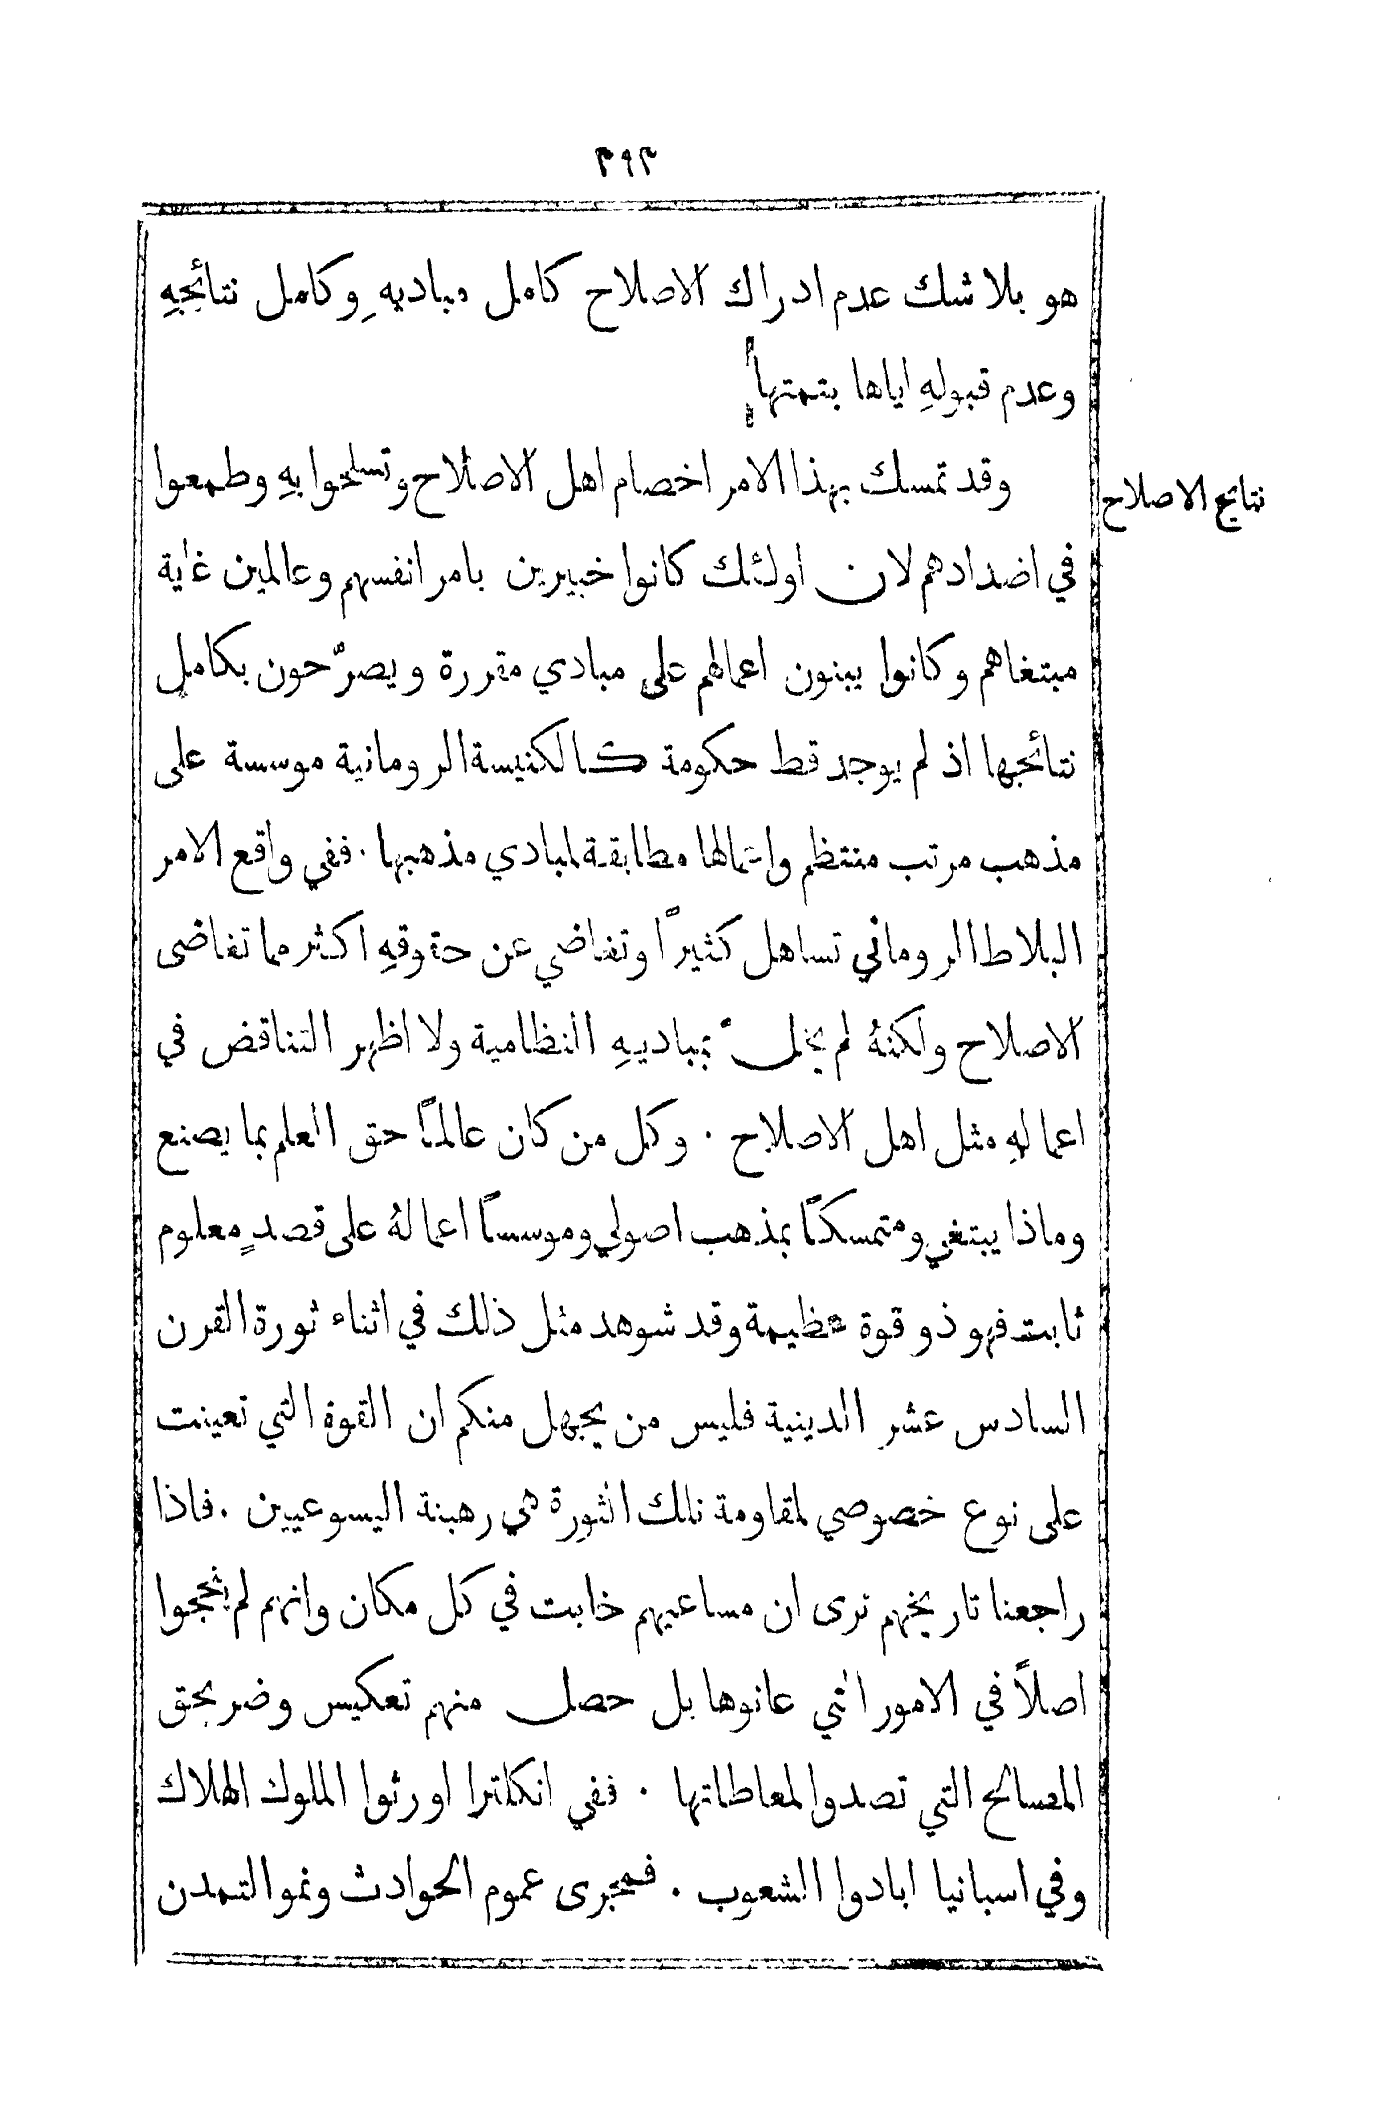 ٣٩٣
هو بلا شك عدم ادراك الاصلاح كامل مباديهِ وكامل نتائجهِ
وعدم قبولهِ اياها بتمتها
وقد تمسك بهذا الامر اخصام اهل الاصلاح وتسلحوا بهِ وطمعوا
نتايج الاصلاح
في اضدادهم لان اولئك كانوا خبيرين بامر انفسهم وعالمين غاية
مبتغاهم وكانوا يبنون اعمالهم على مبادي مقررة ويصرّحون بكامل
نتائجها اذ لم يوجد قط حكومة كالكنيسة الرومانية موسسة على
مذهب مرتب منتظم واعمالها مطابقة لمبادي مذهبها . ففي واقع الامر
البلاط الروماني تساهل كثيراً وتغاضي عن حقوقهِ اكثر مما تغاضى
الاصلاح ولكنهُ لم يخلّ بمباديهِ النظامية ولا اظهر التناقض في
اعمالهِ مثل اهل الاصلاح . وكل من كان عالماً حق العلم بما يصنع
وماذا يبتغي ومتمسكاً بمذهب اصولي وموسساً اعمالهُ على قصدٍ معلوم
ثابت فهو ذو قوة عظيمة وقد شوهد مثل ذلك في اثناء ثورة القرن
السادس عشر الدينية فليس من يجهل منكم ان القوة التي تعينت
على نوع خصوصي لمقاومة تلك الثورة هي رهبنة اليسوعيين . فاذا
راجعنا تاريخهم نرى ان مساعيهم خابت في كل مكان وانهم لم ينجحوا
اصلاً في الامور التي عانوها بل حصل منهم تعكيس وضر بحق
المصالح التي تصدوا لمعاطاتها . ففي انكلترا اورثوا الملوك الهلاك
وفي اسبانيا ابادوا الشعوب . فمجرى عموم الحوادث ونمو التمدن